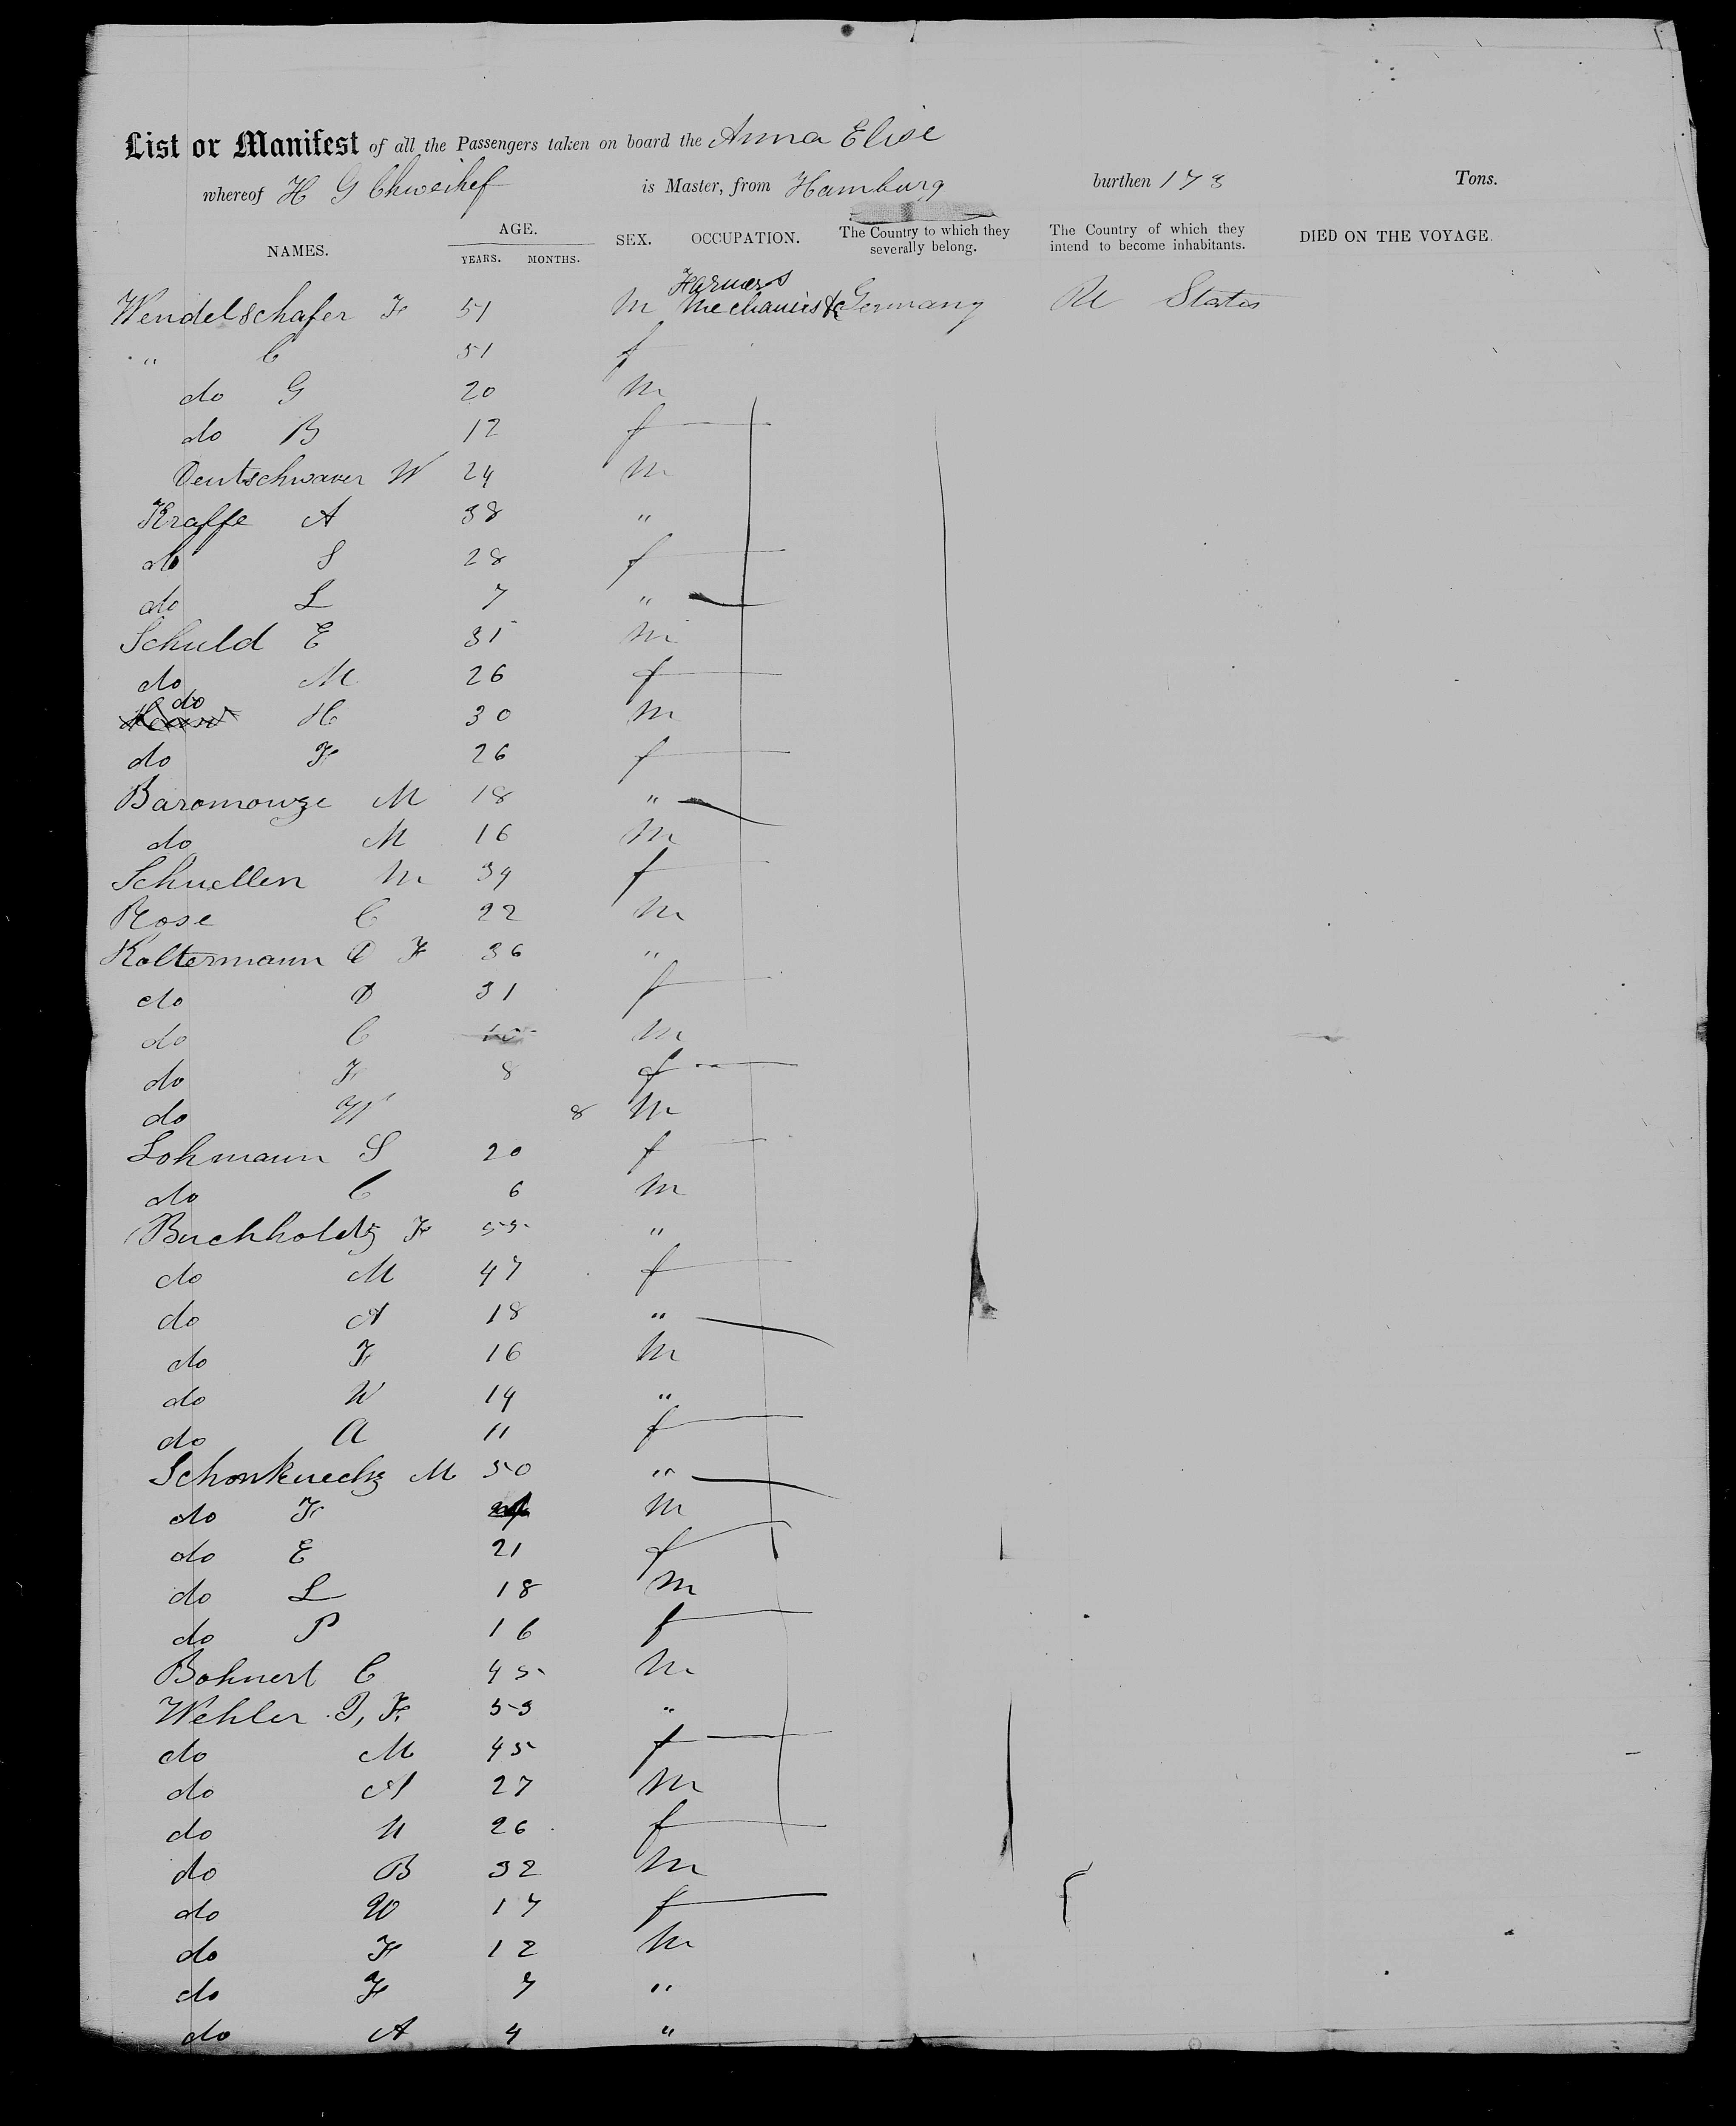 List or Manifest of all the Passengers taken on board the Anna Elise
whereof H G is Master, from Hamburg burthen 173 Tons.
NAMES. AGE. YEARS. MONTHS. SEX. OCCUPATION. The Country to which they severally belong. The Country of which they intend to become inhabitants. DIED ON THE VOYAGE.
Farmers
Wendelschafer F 51 M Mechanics &c Germany U States
" C 51 f
do G 20 M
do B 12 f
Deutschwaver W 24 M
Kraffe A 38 "
do S 28 f
do L 7 "
Schuld E 31 M
do M 26 f
do H 30 M
do F 26 f
Baromowze M 18 "
do M 16 M
Schuellen M 39 f
Rose C 22 M
Koltermann C F 36 "
do D 31 f
do C M
do F 8 f
do W 8 M
Lohmann S 20 f
do C 6 M
Buchholdtz F 55 "
do M 47 f
do A 18 "
do F 16 M
do W 14 "
do A 11 f
Schonknechz M 50 "
do F M
do E 21 f
do L 18 M
do P 16 f
Bohnert C 45 M
Wehler J, F. 53 "
do M 45 f
do A 27 M
do U 26 f
do B 32 M
do W 17 f
do F 12 M
do F 7 "
do A 4 "